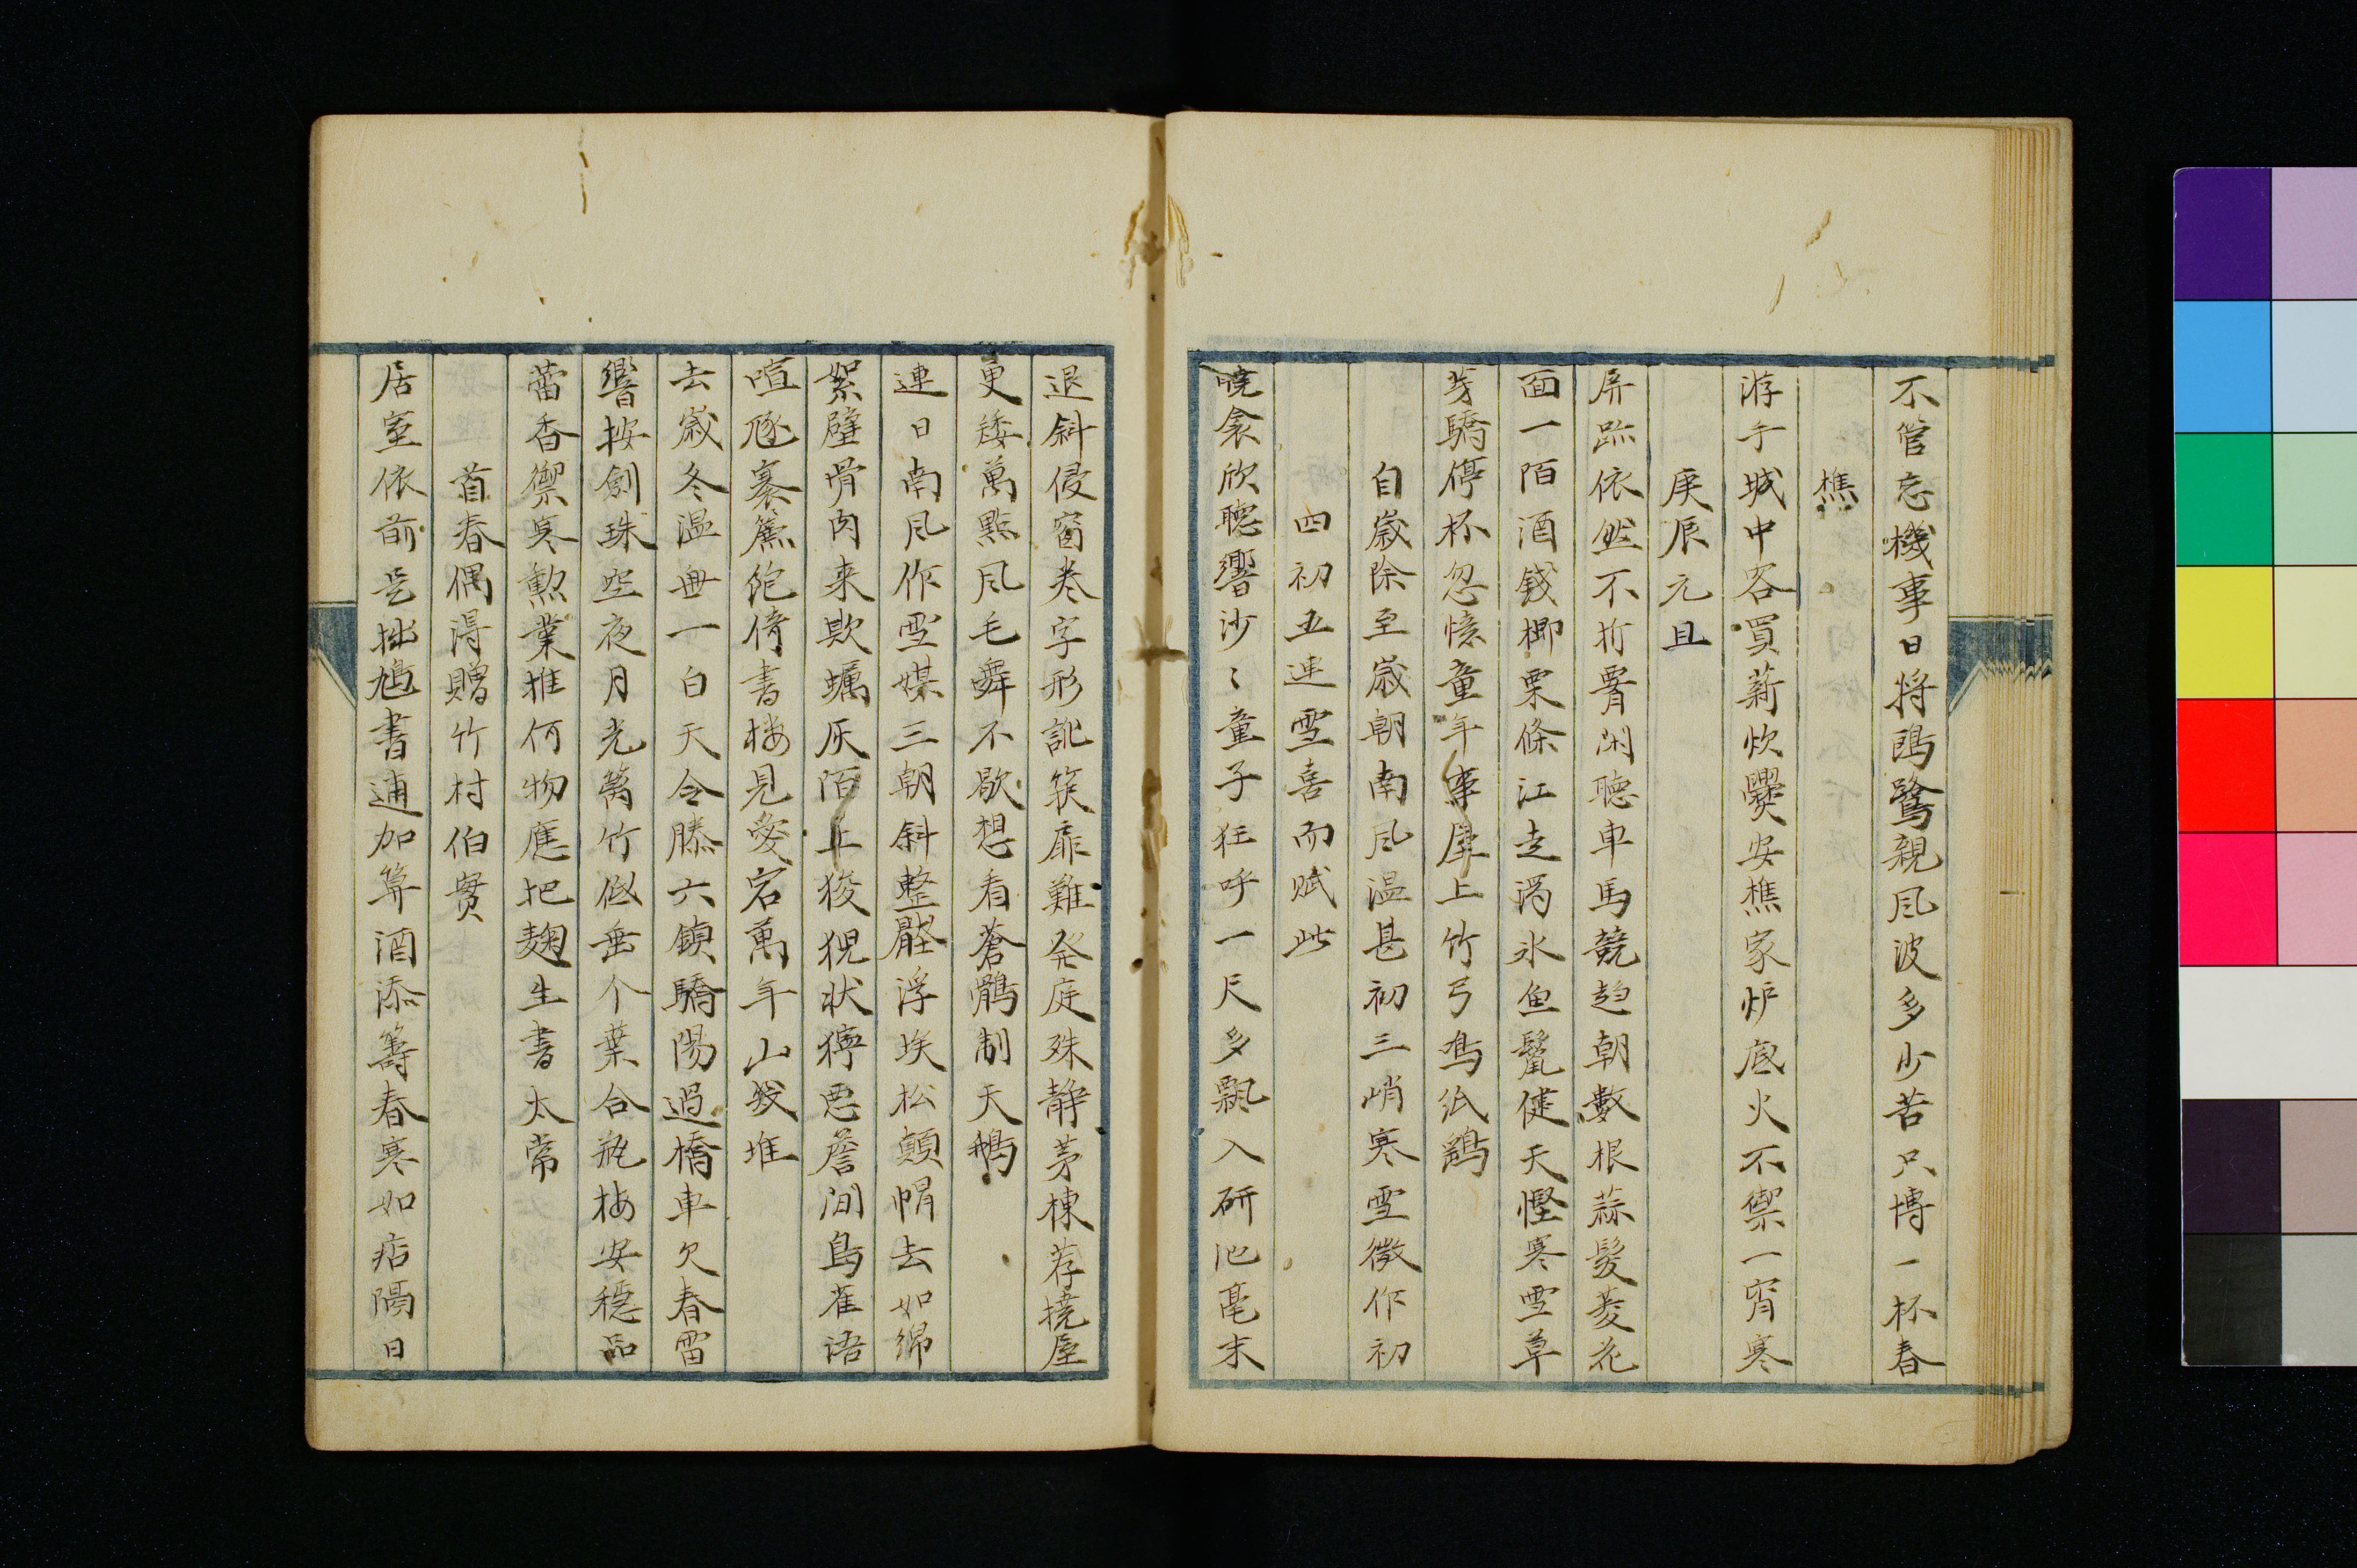 不管忘機事日将鴎鷺親風波多少苦只博一杯春
樵
游于城中客買薪炊爨安樵家炉底火不禦一宵寒
庚辰元旦
屏跡依然不折腰閑聴車馬競趋朝數根蒜髪菱花
面一陌酒銭榔栗條江走潟氷魚鬣健天慳寒雪草
芽驕停杯忽憶童年事犀上竹弓鳥紙鷂
自歳除至歳朝南風温甚初三峭寒雪微作初
四初五連雪喜而賦此
暁衾欣聴響沙〻童子狂呼一尺多飄入研池毫末
退斜侵窗巻字形訛筑扉難発庭殊静茅棟荐撓屋
更矮萬點風毛舞不歇想看蒼鶻制天鵝
連日南風作雪媒三朝斜整醛浮埃松顛帽去如綿
絮壁骨肉来欺蠣灰陌上狻猊状獰悪簷間鳥雀語
喧豗褰簾絶倚書楼見愛宕萬年山發堆
去歳冬温無一白天令滕六鎮驕陽過橋車欠春雷
響按劍珠空夜月光篱竹低垂个葉合瓶梅安穏品
蕾香禦寒勲業推何物應把麹生書太常
首春偶得贈竹村伯實
居室依前是拙鳩書逋加算酒添籌春寒如痁隔日